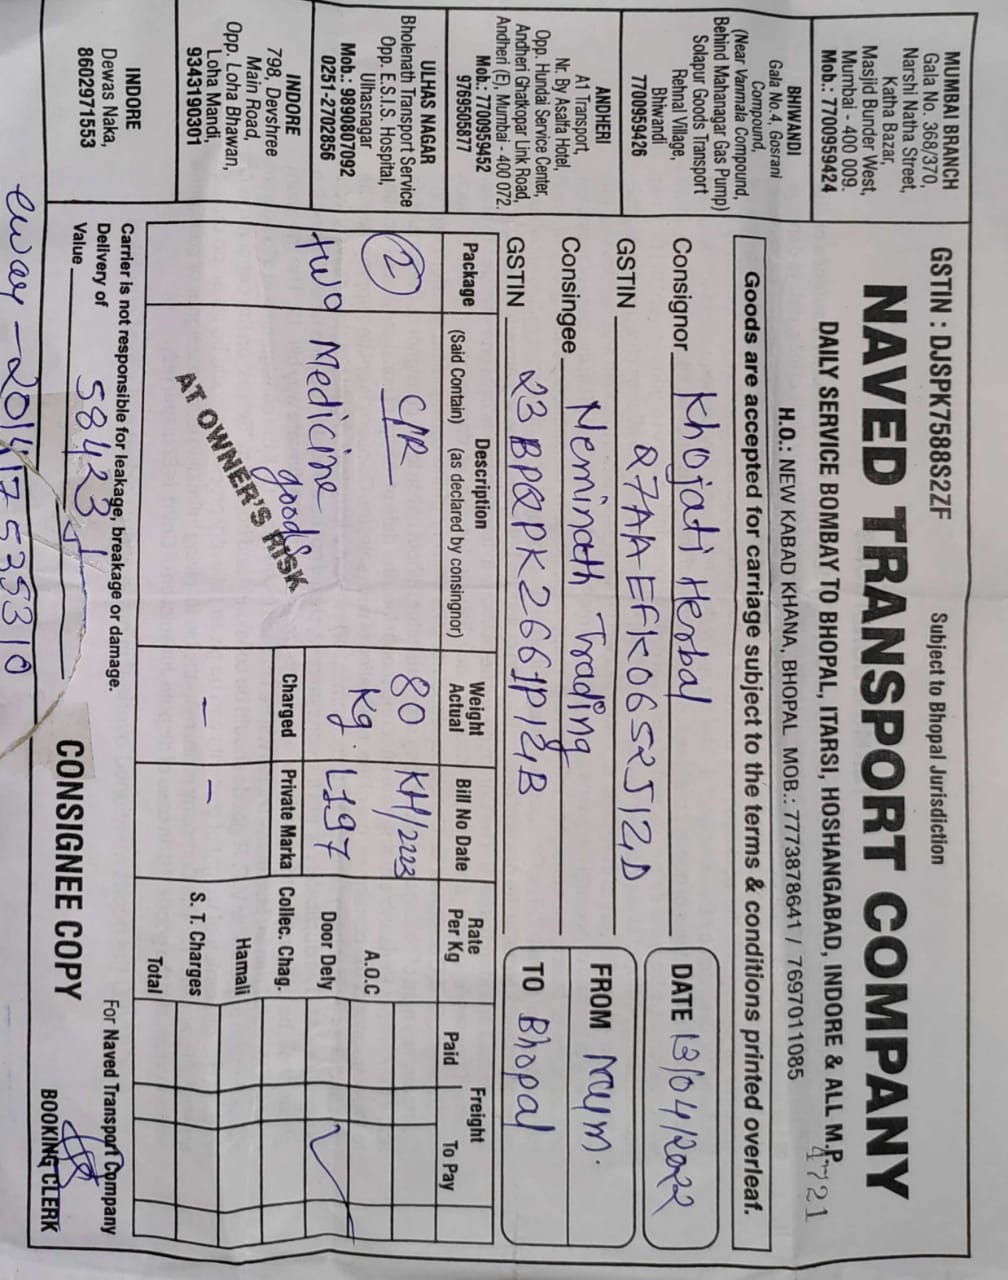 MUMBAI BRANCH
Gala No. 368/370,
Narshi Natha Street,
Katha Bazar,
Masjid Bunder West,
Mumbai - 400 009.
Mob.: 7700959424
BHIWANDI
Gala No.4, Gosrani
Compound,
(Near Vanmala Compound,
Behind Mahanagar Gas Pump)
Solapur Goods Transport
Rehnal Village,
Bhiwandi
7700959426
ANDHERI
A1 Transport,
Nr. By Asalfa Hotel,
Opp. Hundai Service Center,
Andheri Ghatkopar Link Road,
Andheri (E), Mumbai - 400 072.
Mob.: 7700959452
9769505877
ULHAS NAGAR
Bholenath Transport Service
Opp. E.S.I.S. Hospital,
Ulhasnagar
Mob.: 9890807092
0251-2702856
INDORE
798, Devshree
Main Road,
Opp. Loha Bhawan,
Loha Mandi,
9343190301
INDORE
Dewas Naka,
8602971553
GSTIN : DJSPK7588S2ZF
Subject to Bhopal Jurisdiction
NAVED TRANSPORT COMPANY
DAILY SERVICE BOMBAY TO BHOPAL, ITARSI, HOSHANGABAD, INDORE & ALL M.P.
H.O.: NEW KABAD KHANA, BHOPAL MOB.: 7773878641 / 7697011085
4721
Goods are accepted for carriage subject to the terms & conditions printed overleaf.
Consignor Khojati Herbal
GSTIN 27AAEFK0652J1ZD
Consingee Neminath Trading
GSTIN 23BPQPK2661P1ZB
DATE 13/04/2022
FROM
TO Bhopal
Package
Description
(Said Contain) (as declared by consingnor)
Weight
Actual
Bill No Date
Rate
Per Kg
Freight
Paid
To Pay
2
two
C/R
Medicine
goods
AT OWNER'S RISK
80
Kg.
KH/2223
L197
Charged
Private Marka
A.O.C
Door Dely
Collec. Chag.
Hamali
S. T. Charges
Total
Carrier is not responsible for leakage, breakage or damage.
Delivery of
Value 58423/-
CONSIGNEE COPY
For Naved Transport Company
BOOKING CLERK
eway - 201417535310